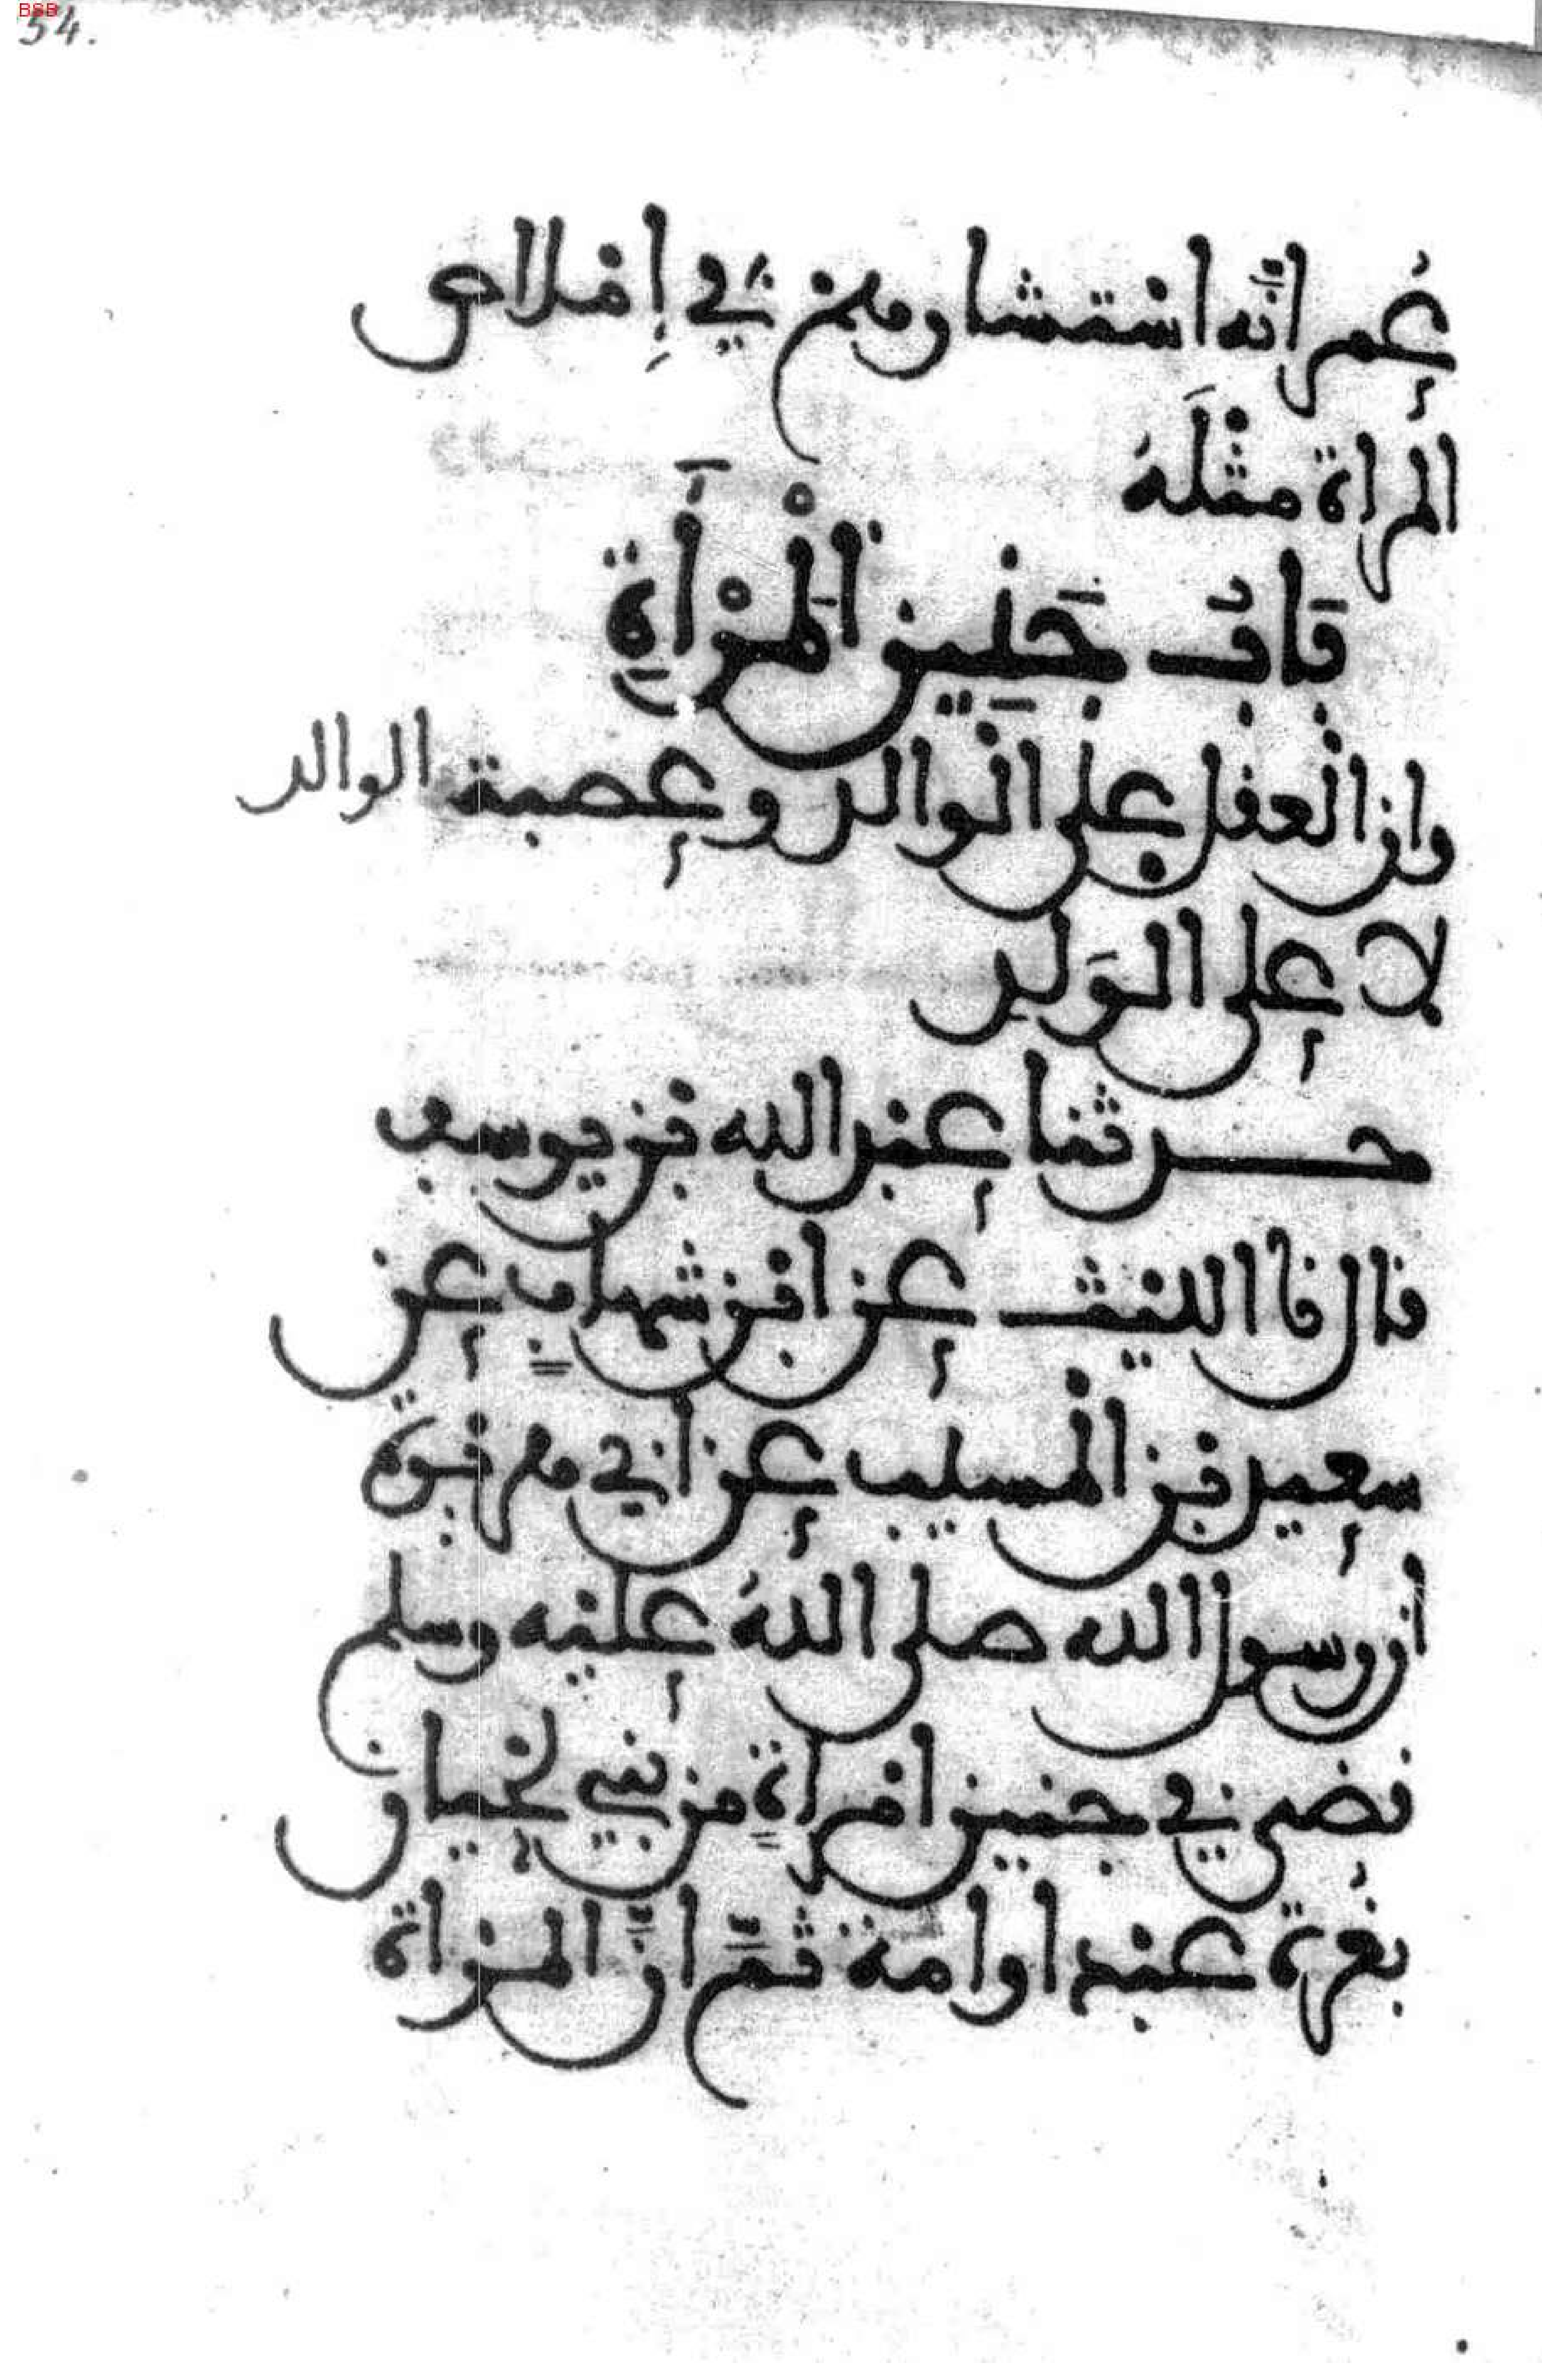 BSB
54.
عُمر انَّه استشارهم في إِملاص
المراة مثلَهُ
بَابُ جَنِينِ الْمَرْأَةِ
وان العقل على الوالد وعصبة الوالد
لا على الوَلَدِ
حدثنا عبد الله بن يوسف
قال نا الليث عن ابن شهابٍ عن
سعيد بن المسيب عن ابي هريرة
أن رسول الله صلى اللهُ عليه وسلم
قضى في جنين امراةٍ من بني لحيان
بغُرة عبد او امة ثمَّ انَّ المراة